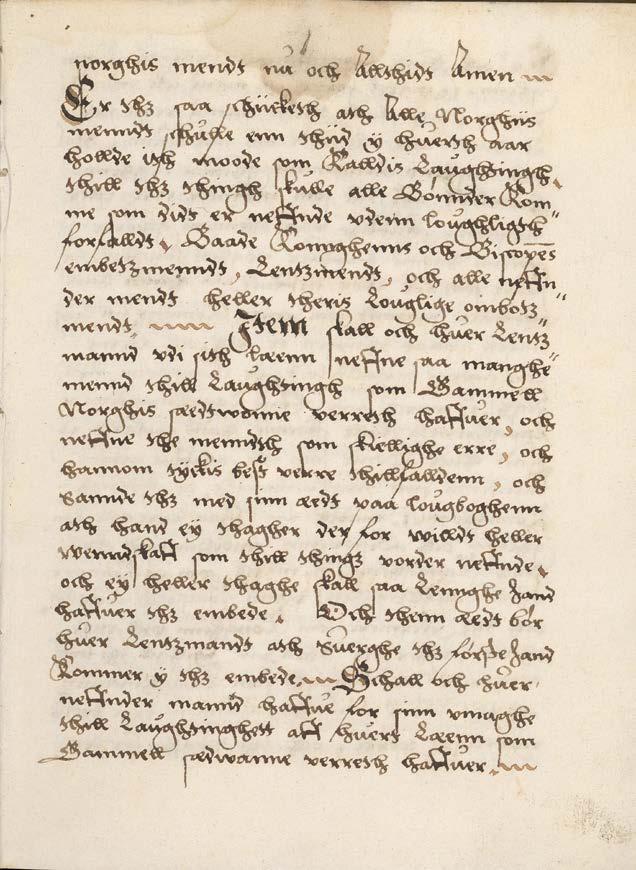 norghis mendt nu och Allthidt Amen
Er thz saa schücketh ath Alle Norghis
menndt schulle enn thiid y huerth aar
hollde ith moode som Kalldis Laughtingh
thill thz thingh skulle alle Bønnder Kom
me som didt er neffnde vdenn loughligth
forfalldt, Baade Konnghenns och Biscopes
embetzmenndt, Lentzmendt, och alle neffn
der mendt heller theris Louglige ombotz
mendt. Jtem skall och huer Lentz
mannd vdi sith læenn neffne saa manghe
mennd thill Laughtingh som Gammell
Norghis sædtwonne verreth haffuer, och
neffne the menndth som skiellighe erre, och
hannom tyckis best verre thillfalldenn, och
sannde thz med sinn ædt paa lougboghenn
ath hand ey thagher der for willdt heller
wenndskaff som thill thingz vorder neffnde.
och ey heller thaghe skall saa lennghe hand
haffuer thz embede. Och thenn ædt bør
huer Lentzmandt ath suerghe thz første hand
Kommer y thz embede. Schall och huer
neffnder mannd haffue for sinn vmaghe
thill Laughtinghett aff huert Læenn som
Gammell sædwanne verreth haffuer.